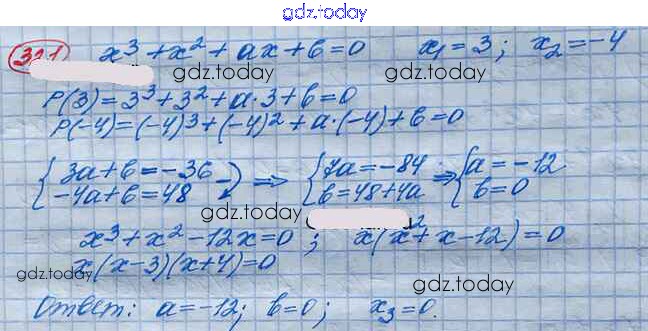 gdz.today
321 x³ + x² + ax + b = 0 x₁ = 3; x₂ = -4
gdz.today gdz.today
P(3) = 3³ + 3² + a·3 + b = 0
P(-4) = (-4)³ + (-4)² + a·(-4) + b = 0
{3a + b = -36 ⇒ {7a = -84 ⇒ {a = -12
-4a + b = 48 b = 48 + 4a b = 0
gdz.today
x³ + x² - 12x = 0; x(x² + x - 12) = 0
x(x-3)(x+4) = 0
gdz.today gdz.today
Ответ: a = -12; b = 0; x₃ = 0.